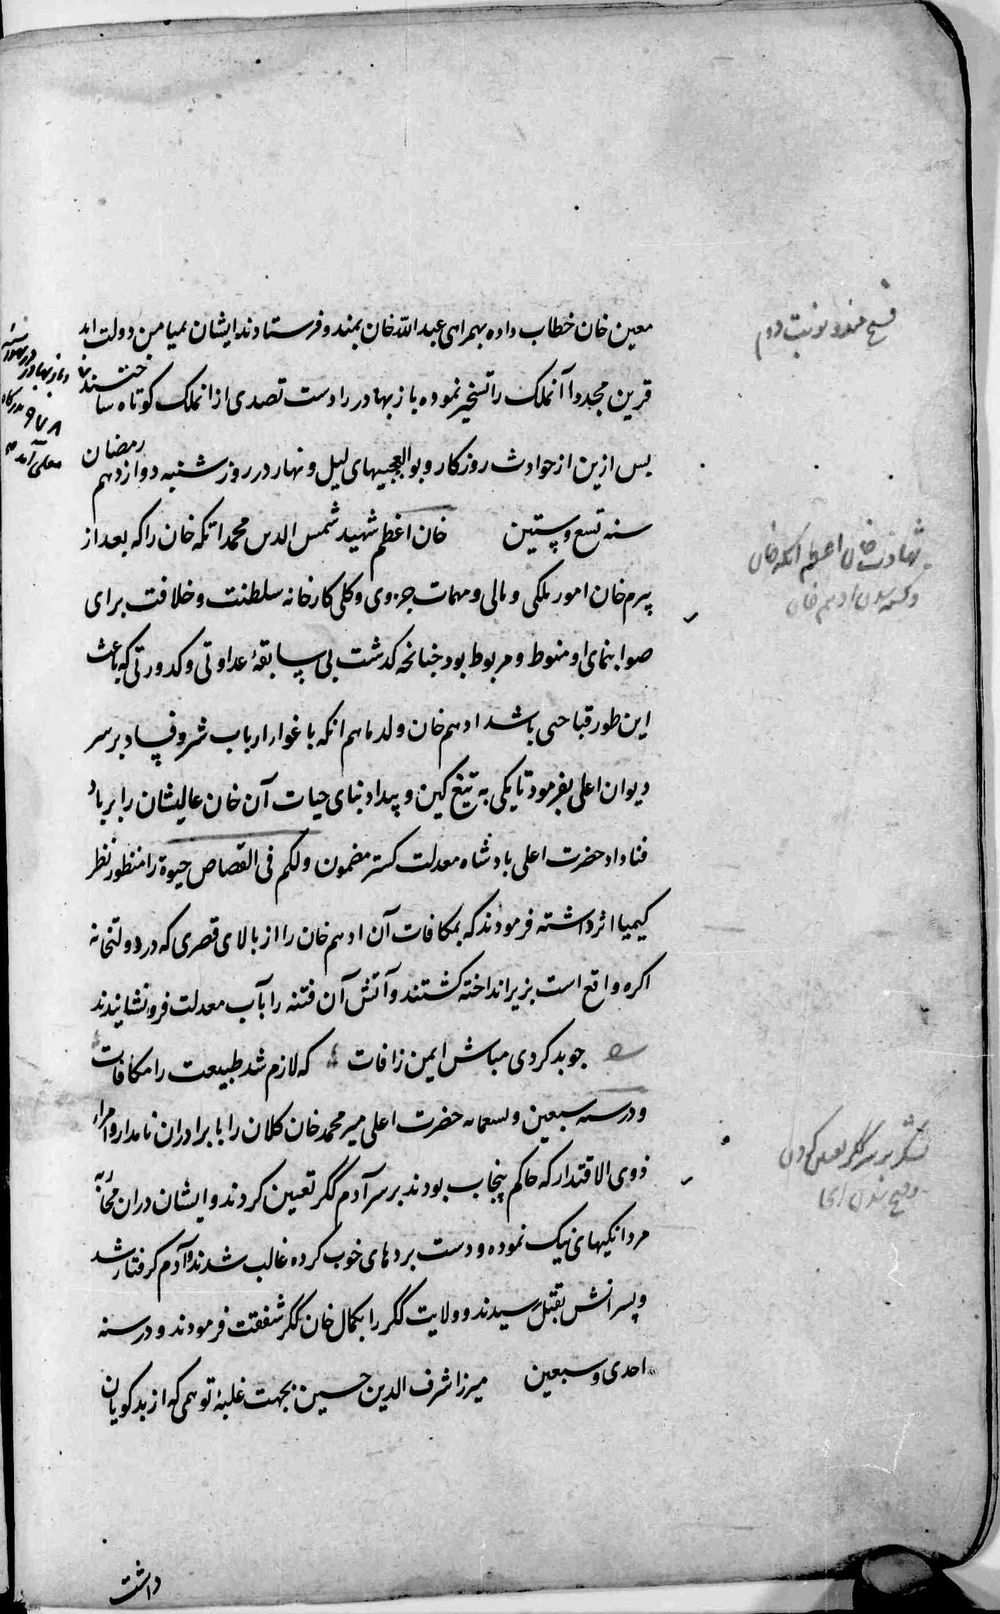 معین خان خطاب داده بهمراهی عبدالله خان بمندو فرستادند ایشان بمیامن دولت ابد
قرین مجددا آنملک را تسخیر نموده باز بهادر را دست تصدی از انملک کوتاه ساختند
پس ازین از حوادث روزکار و بوالعجبیهای لیل و نهار در روز شنبه دوازدهم رمضان
سنه تسع و ستین خان اعظم شهید شمس الدین محمد اتکه خان را که بعد از
بیرم خان امور ملکی و مالی و مهمات جزوی و کلی کارخانه سلطنت و خلافت برای
صوابنمای او منوط و مربوط بود چنانچه کذشت بی سابقهٔ عداوتی و کدورتی که باعث
این طور قباحتی باشد ادهم خان ولد ماهم انکه باغوار ارباب شر و فساد بر سر
دیوان اعلی بفرمود تا یکی به تیغ کین و بیداد بنای حیات آن خان عالیشان را برباد
فنا داد حضرت اعلی بادشاه معدلت کستر مضمون ولکم فی القصاص حیوة را منظور نظر
کیمیا اثر داشته فرمودند که بمکافات آن ادهم خان را از بالای قصری که در دولتخانه
اکره واقع است بزیر انداخته کشتند و آتش آن فتنه را بآب معدلت فرو نشانیدند
جو بد کردی مباش ایمن ز افات که لازم شد طبیعت را مکافات
و در سنه سبعین و تسعمایه حضرت اعلی میر محمد خان کلان را با برادران نامدار و امراء
ذوی الاقتدار که حاکم پنجاب بودند بر سر آدم ککر تعیین کردند و ایشان دران محاربه
مردانکیهای نیک نموده و دست بردهای خوب کرده غالب شدند و آدم کرفتار شد
و پسرانش بقتل رسیدند و ولایت ککر را بکمال خان ککر شفقت فرمودند و در سنه
احدی و سبعین میرزا شرف الدین حسین بجهت غلبهٔ توهمی که از بدکویان
داشت
فتح مندو نوبت دوم
شهادت خان اعظم اتکه خان
و کشته شدن ادهم خان
لشکر بر سر ککر تعین کردن
و فتح شدن انجا
۹۷۸